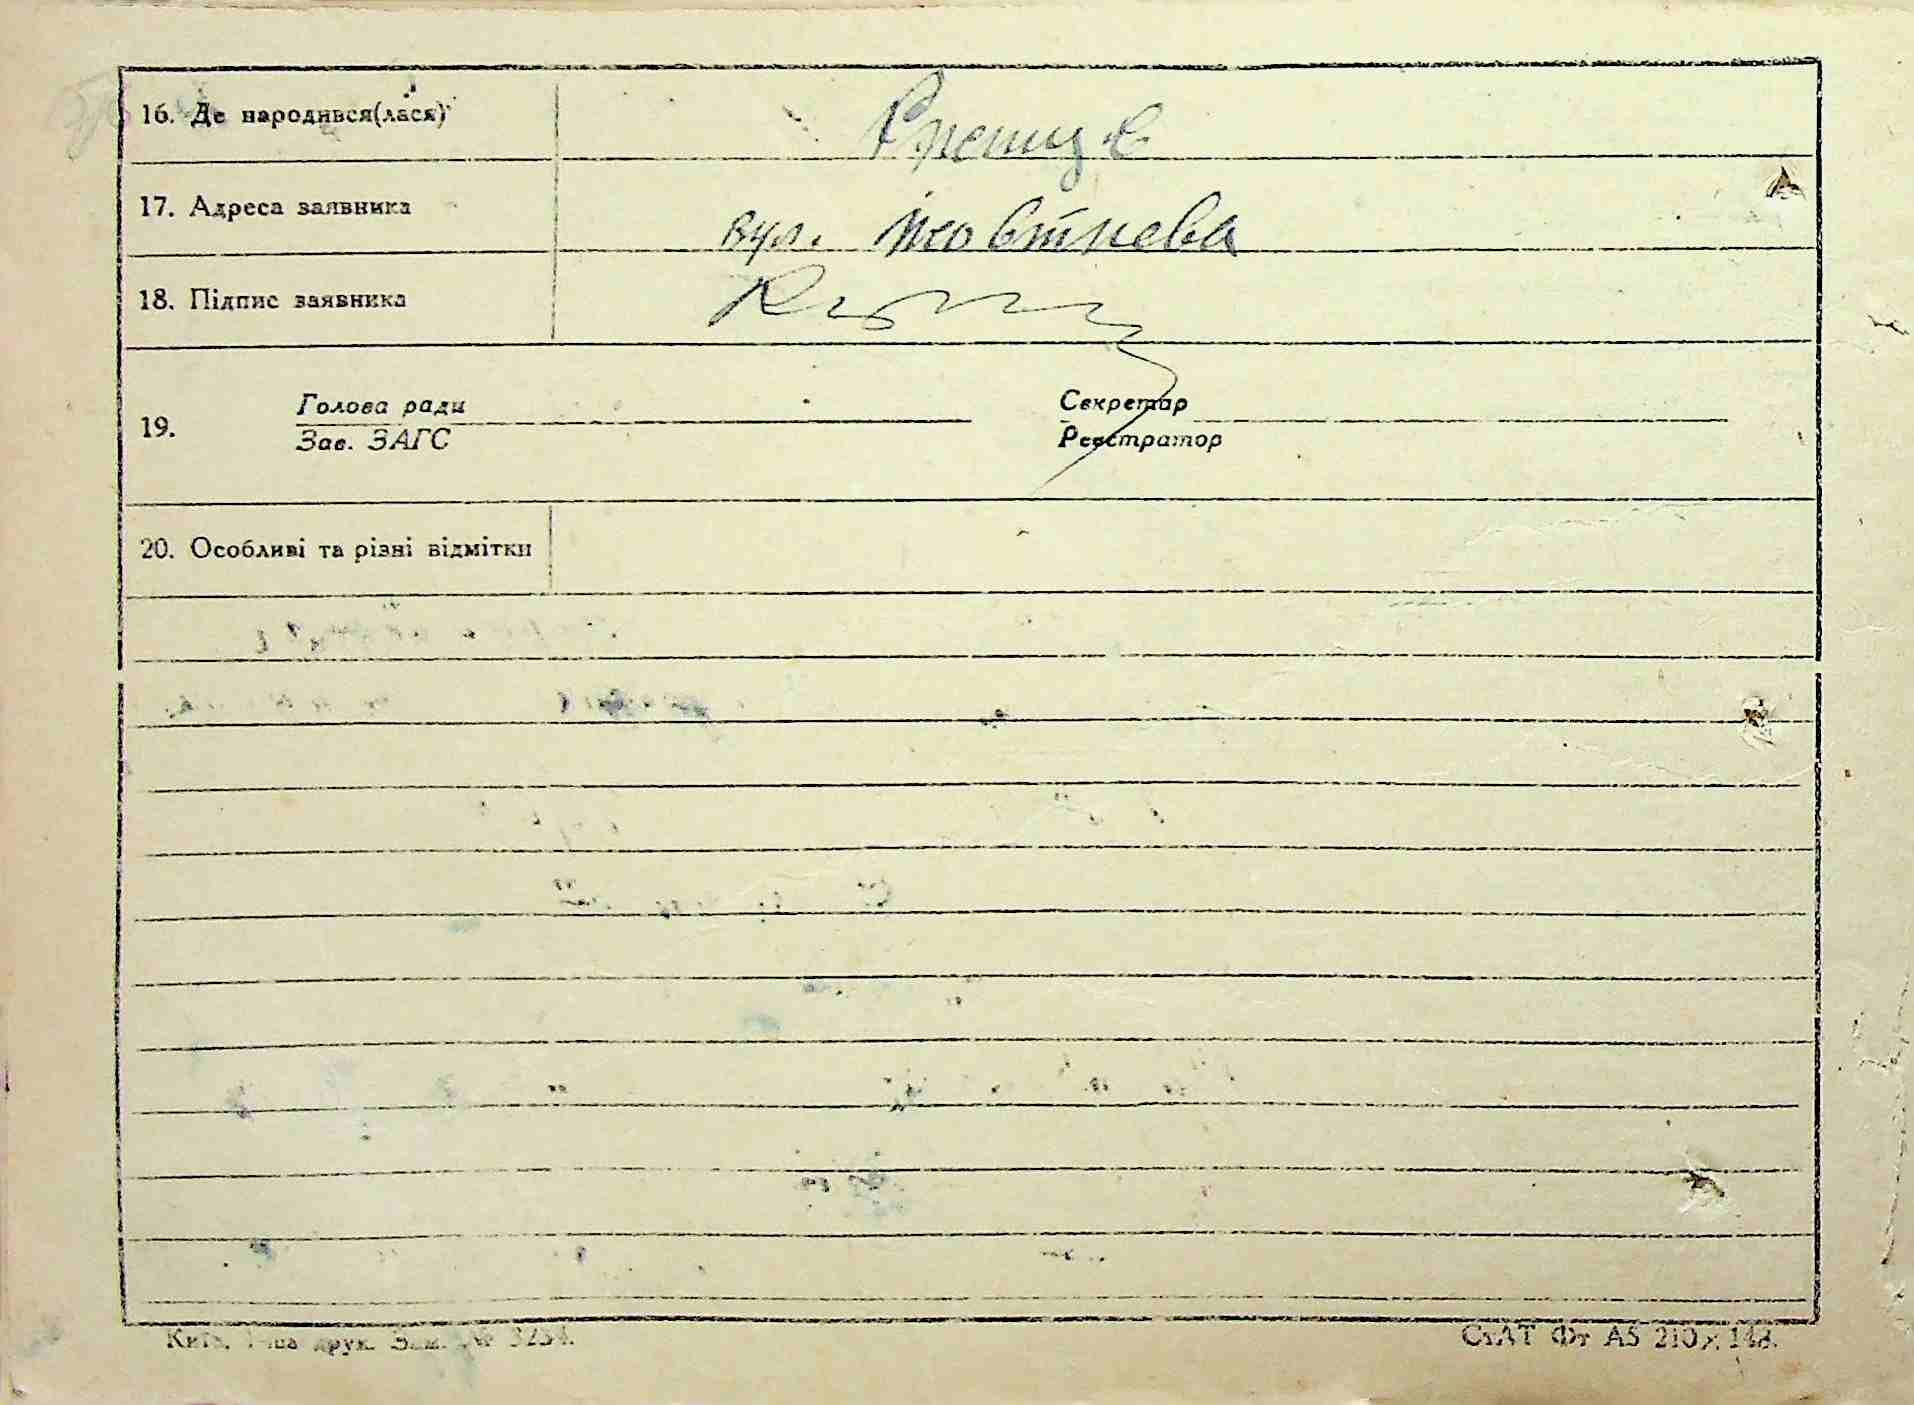 16. Де народився(лася)
17. Адреса заявника вул. Жовтнева
18. Підпис заявника
Голова ради Секретар
19.
Зав. ЗАГС Реєстратор
20. Особливі та різні відмітки
Київ. друк. Зам. № 3254.
СтАТ Фт А5 210×148.